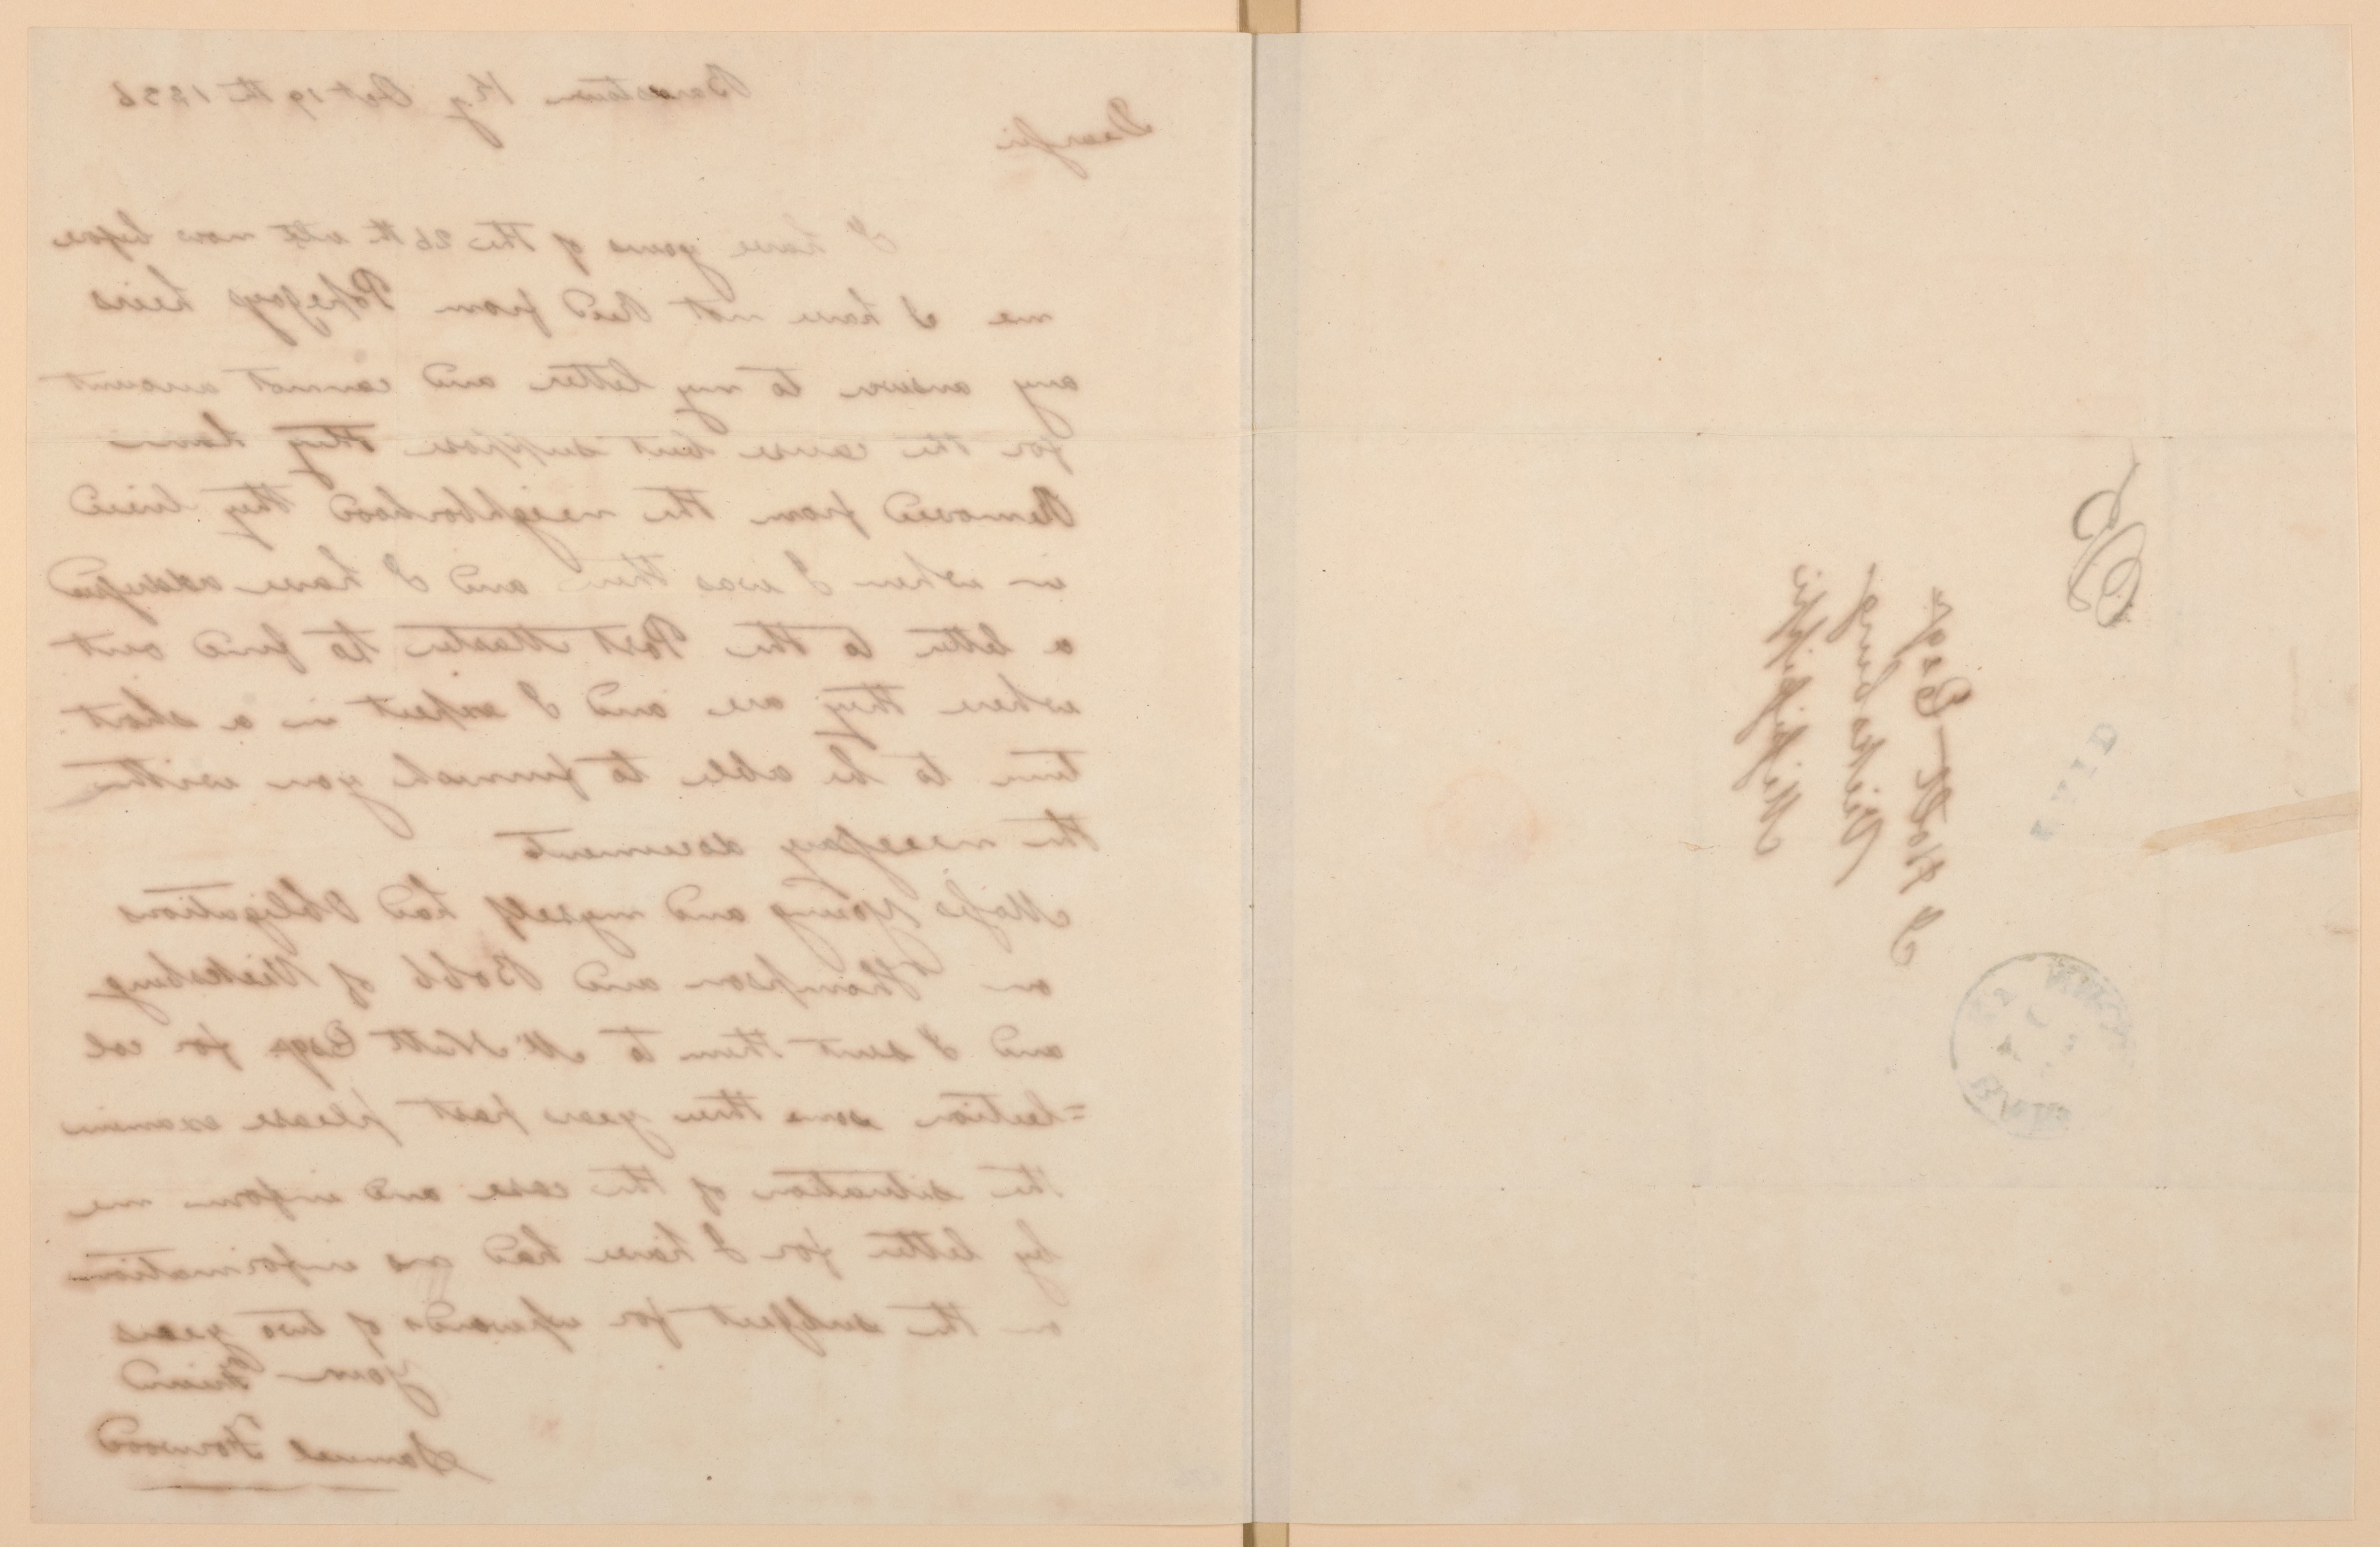 Bardstown Ky Oct 19th 1836
Dear Sir
I have yours of the 26th ult now before
me I have not Recd from heirs
any answer to my letter and cannot account
for the cause but suppose they have
Removed from the neighborhood they lived
in when I was there and I have addressed
a letter to the Post Master to find out
where they are and I expect in a short
time to be able to furnish you with
the necessary documents
Young and myself had Obligations
on Thompson and Bobb of Vicksburg
and I sent them to Wm Hatt Esqr for col
=lection some three years past please examine
the situation of the case and inform me
by letter for I have had no information
on the subject for upwards of two years
your Friend
Samuel Forwood
J Holt Esqr
Vicksburg
Mississippi
PAID